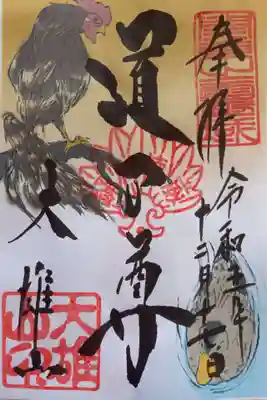 奉拝
令和年
十二月十七日
道了尊
大雄山
大雄山印